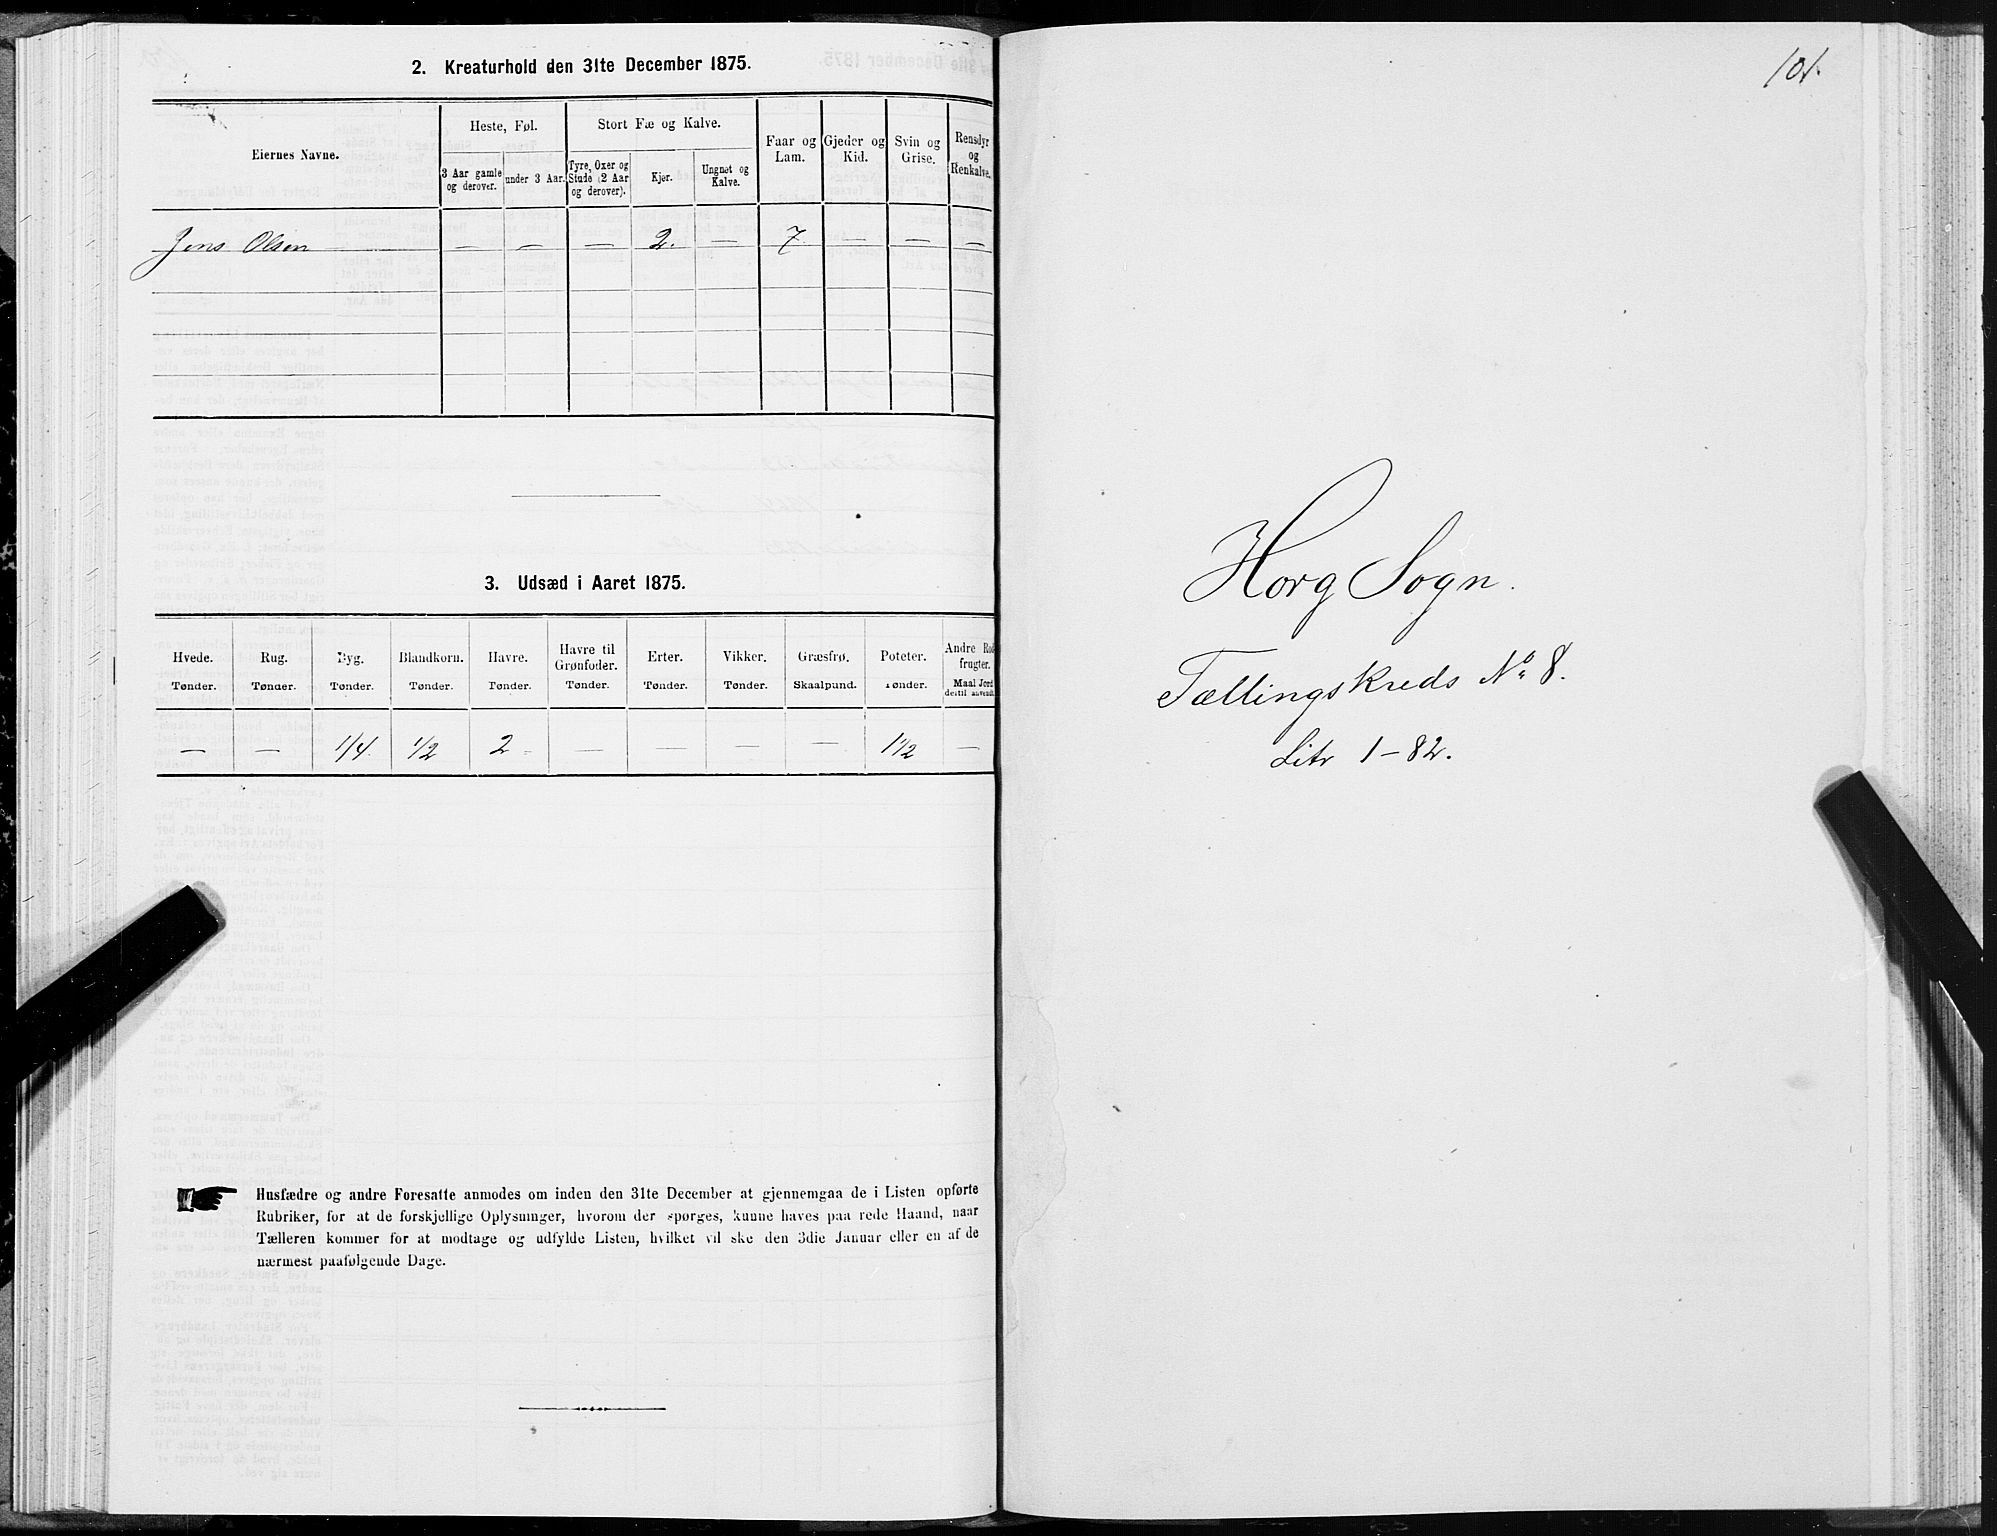 2. Kreaturhold den 31te December 1875.
Eiernes Navne.
Heste, Føl.
Stort Fæ og Kalve.
Faar og Lam.
Gjeder og Kid.
Svin og Grise.
Rensdyr og Renkalve.
3 Aar gamle og derover.
under 3 Aar.
Tyre, Oxer og Stude (2 Aar og derover).
Kjør.
Ungnøt og Kalve.
Jens Olsen — — — 2. — 7 — — —
3. Udsæd i Aaret 1875.
Hvede. Rug. Byg. Blandkorn. Havre. Havre til Grønfoder. Erter. Vikker. Græsfrø. Poteter. Andre Rodfrugter.
Tønder. Tønder. Tønder. Tønder. Tønder. Tønder. Tønder. Tønder. Skaalpund. Tønder. Maal Jord dertil anvendt.
— — 1/4. 1/2 2 — — — — 1 1/2 —
Husfædre og andre Foresatte anmodes om inden den 31te December at gjennemgaa de i Listen opførte
Rubriker, for at de forskjellige Oplysninger, hvorom der spørges, kunne haves paa rede Haand, naar
Tælleren kommer for at modtage og udfylde Listen, hvilket vil ske den 3die Januar eller en af de
nærmest paafølgende Dage.
101.
Horg Sogn.
Tællingskreds No 8.
Litr 1-82.